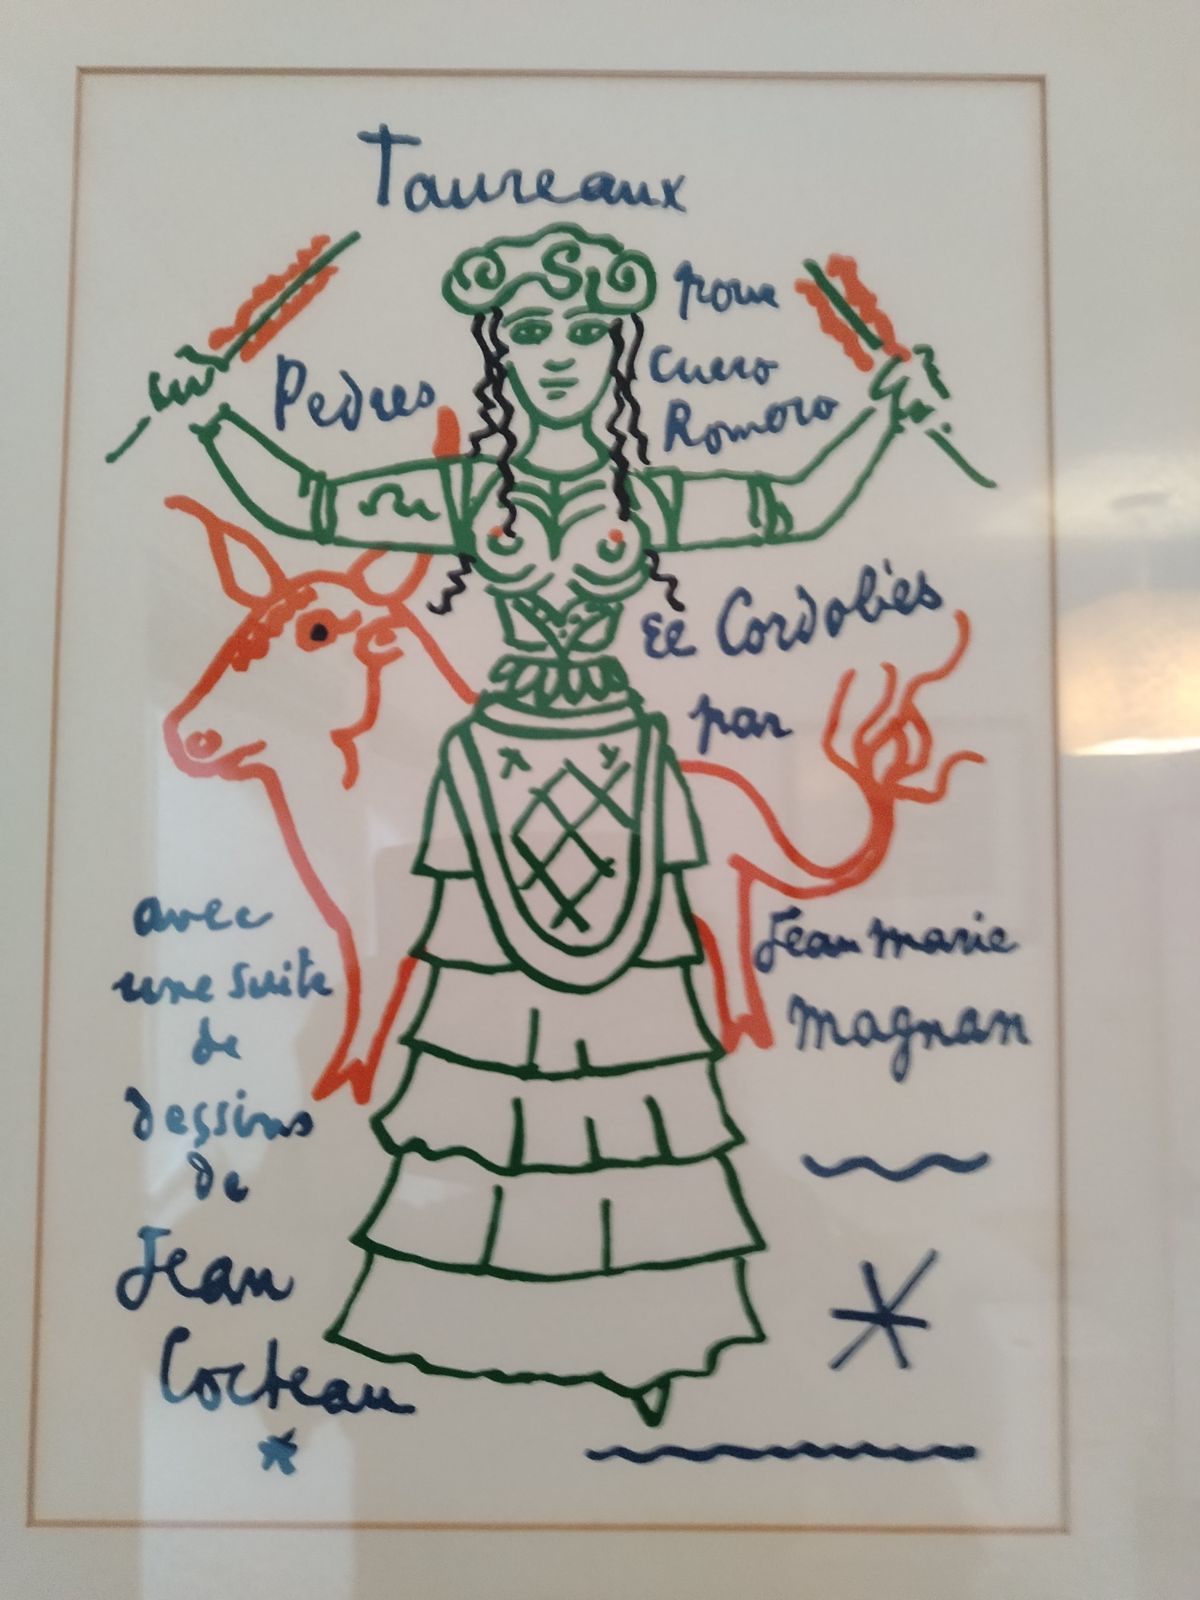 Taureaux
pour
Pedrés
Curro
Romero
El Cordobés
par
Jean marie
magnan
avec
une suite
de
dessins
de
Jean
Cocteau